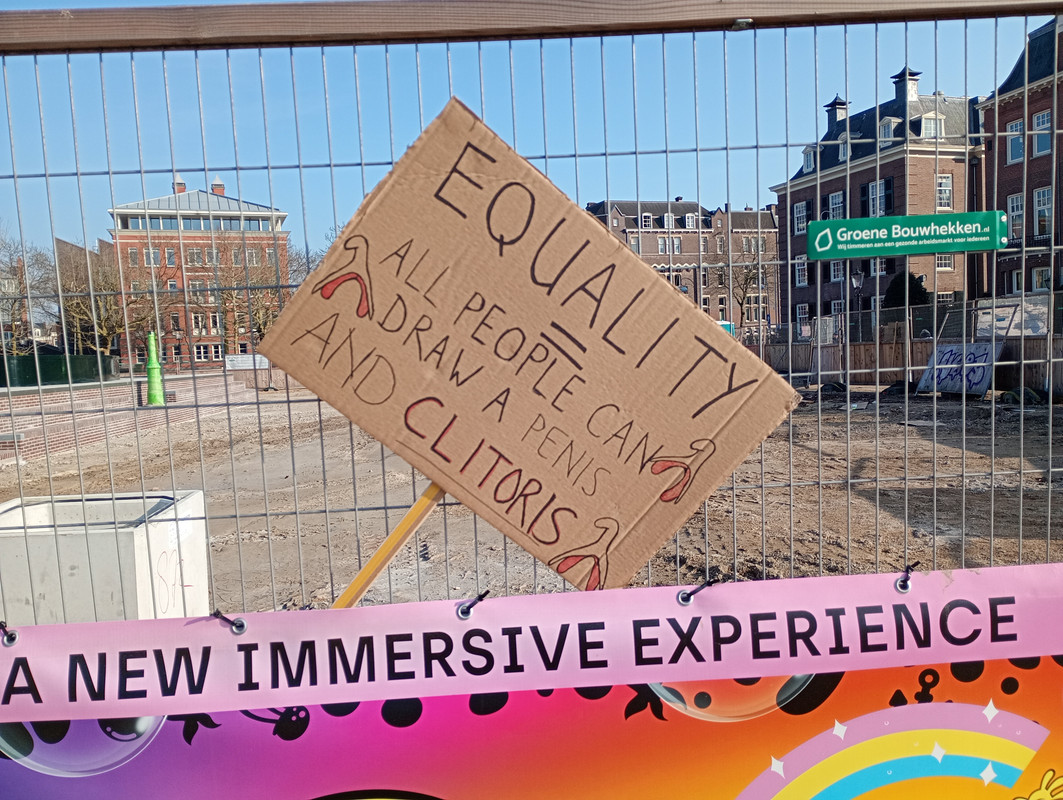 EQUALITY
=
ALL PEOPLE CAN
DRAW A PENIS
AND CLITORIS
Groene Bouwhekken.nl
Wij timmeren aan een gezonde arbeidsmarkt voor iedereen
A NEW IMMERSIVE EXPERIENCE